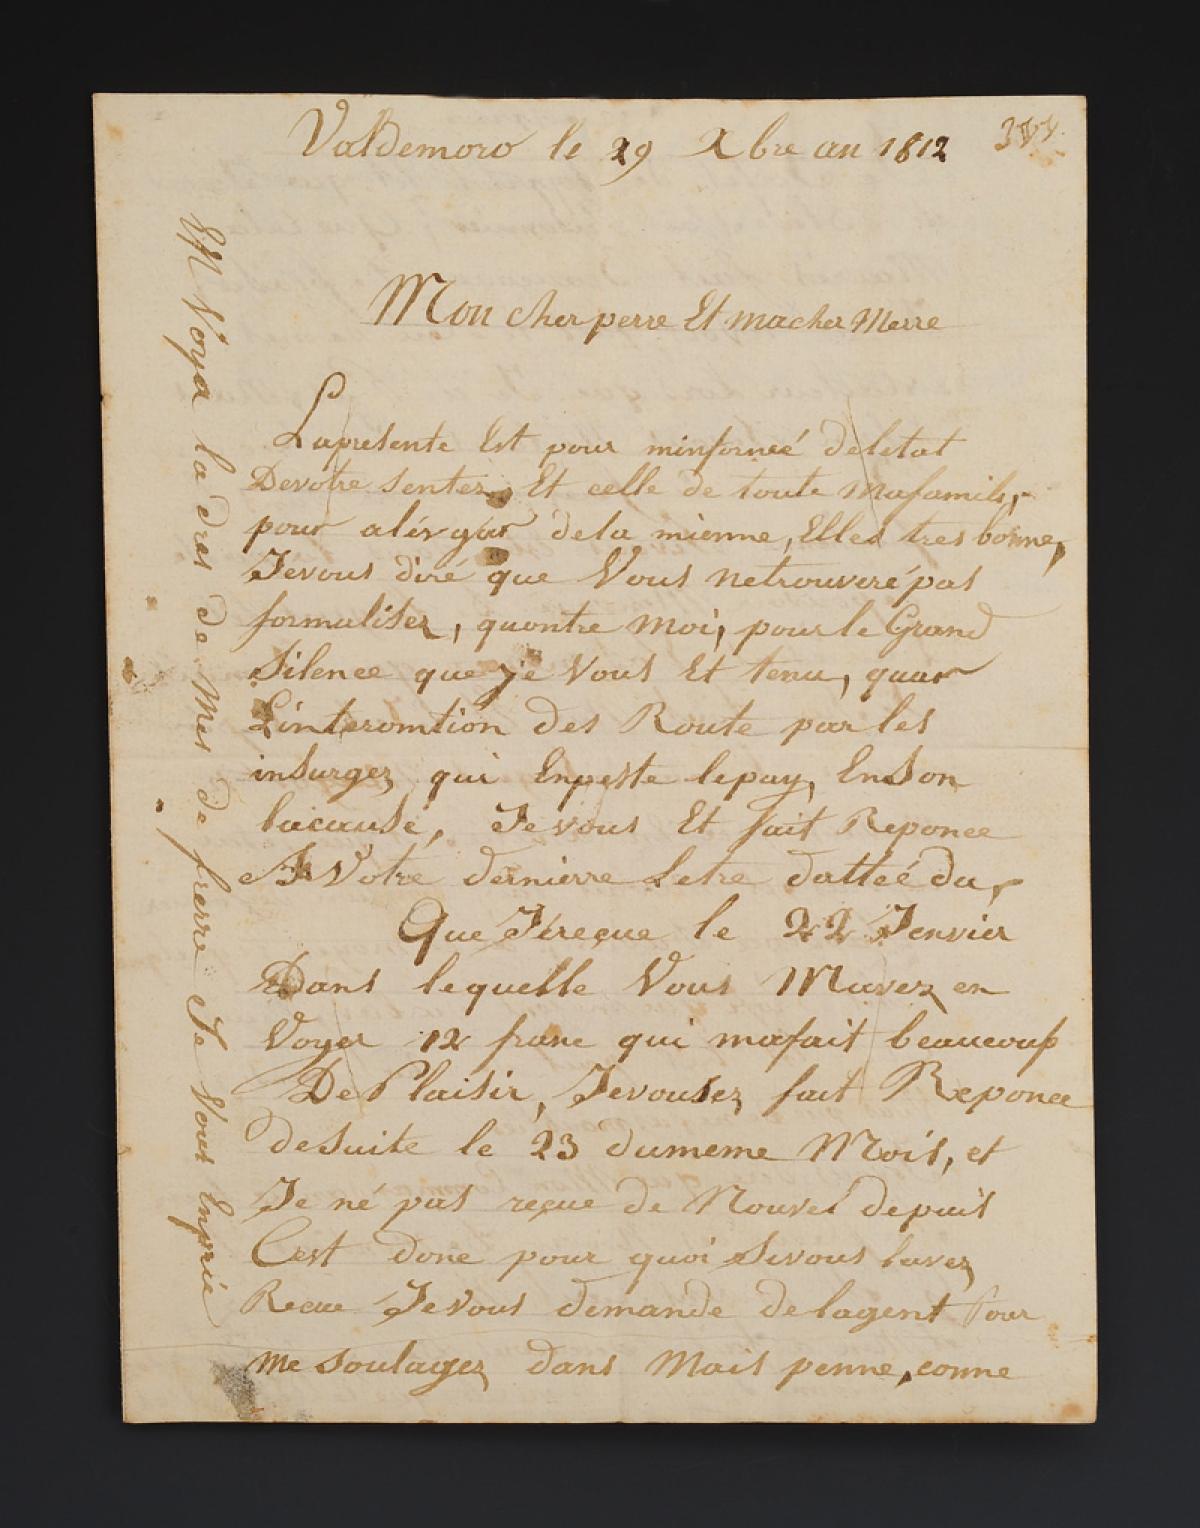 Valdemoro le 29 Xbre an 1812
Mon cher perre Et ma cher Merre
Lapresente Est pour minformeé deletat
Devotre sentez, Et celle de toute mafamile,
pour alérgar dela mienne, Elles tres bonne,
Jevous diré que Vous netrouveré pas
formalisez, quontre moi, pour le Grand
Silence que je Vous Et tenu, quar
Linteromtion des Route par les
insurgez qui Enpeste lepay, Enson
lacause, Jevous Et fait Reponce
A Votre dernierre Letre dattéé du,
Que Jéreçue le 22 Jenvier
Dans lequelle Vous Mavez en
Voyer 12 franc qui mafait beaucoup
De Plaisir, Jevousez fait Reponce
desuite le 23 dumeme Mois, et
Je né pas reçue de Nouvel depuis
Cest donc pour quoi Sivous lavez
Recue Jevous demande delagent Pour
me Soulagez dans Mais penne, conne
EN Voyá la dres de Mes de frerre Je Vous Enprié